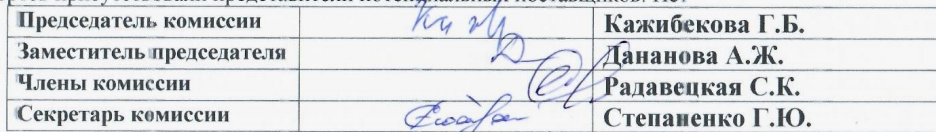 Председатель комиссии Кажибекова Г.Б.
Заместитель председателя Дананова А.Ж.
Члены комиссии Радавецкая С.К.
Секретарь комиссии Степаненко Г.Ю.